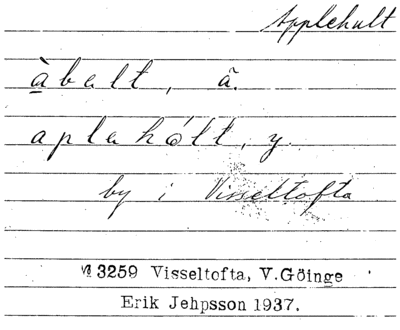 Applehult
àbalt, ã.
aplahólt, y.
by i Visseltofta
3259 Visseltofta, V.Göinge
Erik Jehpsson 1937.